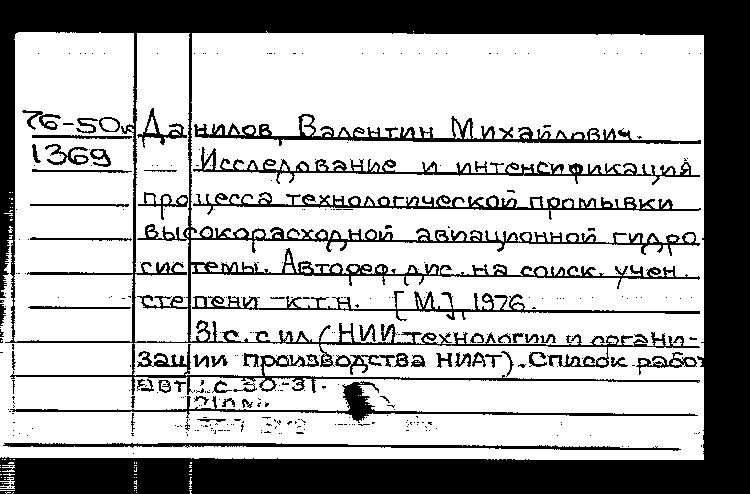 76-50
1369
Данилов, Валентин Михайлович.
Исследование и интенсификация
процесса технологической промывки
высокорасходной авиационной гидро-
системы. Автореф. дис. на соиск. учен.
степени к.т.н. [М.], 1976.
31 с. с ил. (НИИ технологии и органи-
зации производства НИАТ). Список работ
авт.: с. 30-31.